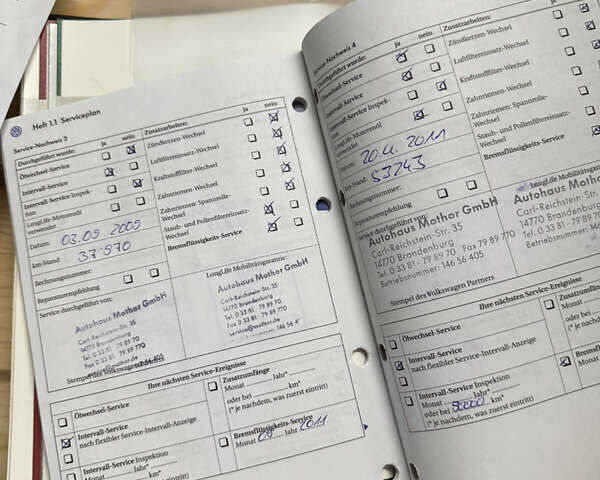 Heft 1.1 Serviceplan
Service-Nachweis 3
Durchgeführt wurde: ja nein
Ölwechsel-Service
Intervall-Service
Intervall-Service Inspek-
tion
LongLife-Motorenöl
verwendet
Datum: 03.09.2009
km-Stand: 37 970
Rechnungsnummer:
Reparaturempfehlung
Service durchgeführt von:
Autohaus Mothor GmbH
Carl-Reichstein-Str. 35
14770 Brandenburg
Tel. 0 33 81 - 79 89 70
Stempel des Volkswagen
Zusatzarbeiten: ja nein
Zündkerzen-Wechsel
Luftfiltereinsatz-Wechsel
Kraftstofffilter-Wechsel
Zahnriemen-Wechsel
Zahnriemen- Spannrolle-
Wechsel
Staub- und Pollenfiltereinsatz-
Wechsel
Bremsflüssigkeits-Service
LongLife Mobilitätsgarantie:
Autohaus Mothor GmbH
Carl-Reichstein-Str. 35
14770 Brandenburg
Tel. 0 33 81 - 79 89 70
Ihre nächsten Service-Ereignisse
Ölwechsel-Service
Intervall-Service
nach flexibler Service-Intervall-Anzeige
Intervall-Service Inspektion
Monat Jahr*
Zusatzumfänge
Monat Jahr*
oder bei km*
(* je nachdem, was zuerst eintritt)
Bremsflüssigkeits-Service
Monat 09 Jahr 2011
Service-Nachweis 4
Durchgeführt wurde: ja nein
Ölwechsel-Service
Intervall-Service
Intervall-Service Inspek-
tion
LongLife-Motorenöl
verwendet
Datum: 20.4.2011
km-Stand: 53243
Rechnungsnummer:
Reparaturempfehlung
Service durchgeführt von:
Autohaus Mothor GmbH
Carl-Reichstein-Str. 35
14770 Brandenburg
Tel. 0 33 81 - 79 89 70 Fax 79 89 770
Betriebsnummer: 146 56 405
Stempel des Volkswagen Partners
Zusatzarbeiten:
Zündkerzen-Wechsel
Luftfiltereinsatz-Wechsel
Kraftstofffilter-Wechsel
Zahnriemen-Wechsel
Zahnriemen- Spannrolle-
Wechsel
Staub- und Pollenfiltereinsatz-
Wechsel
Bremsflüssigkeits-Service
LongLife Mobilitätsgarantie
Autohaus Mothor
Carl-Reichstein-Str. 35
14770 Brandenburg
Tel. 0 33 81 - 79 89 70
Betriebsnummer: 146
Ihre nächsten Service-Ereignisse
Ölwechsel-Service
Intervall-Service
nach flexibler Service-Intervall-Anzeige
Intervall-Service Inspektion
Monat Jahr*
oder bei km*
(* je nachdem, was zuerst eintritt)
Zusatzumfänge
Monat
oder bei
(* je nachdem,
Bremsflüssigkeits
Monat